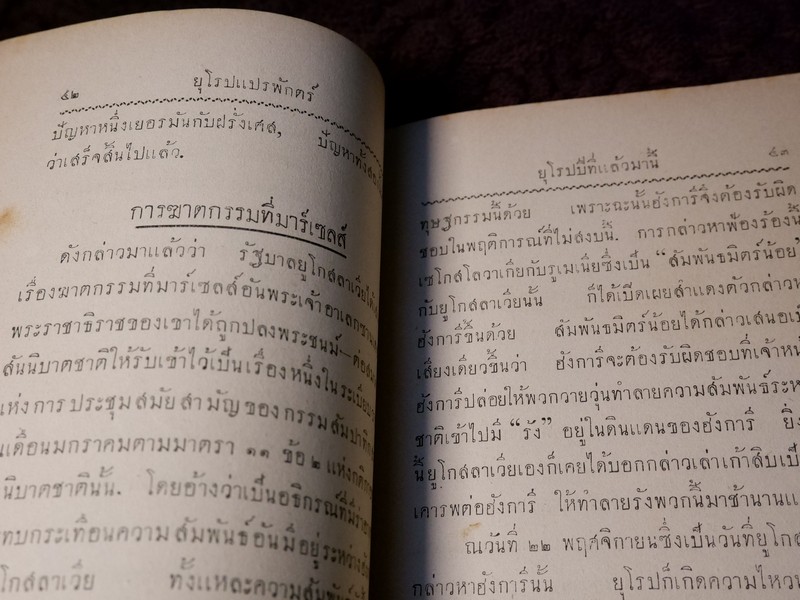 ๔๒ ยุโรปแปรพักตร์
ปัญหาหนึ่งเยอรมันกับฝรั่งเศส, ปัญหาทั้งสอง
ว่าเสร็จสิ้นไปแล้ว.
การฆาตกรรมที่มาร์เซลส์
ดังกล่าวมาแล้วว่า รัฐบาลยูโกสลาเวีย
เรื่องฆาตกรรมที่มาร์เซลส์อันพระเจ้าอาเลกซานเ
พระราชาธิราชของเขาได้ถูกปลงพระชนม์—ต่อ
สันนิบาตชาติให้รับเข้าไว้เป็นเรื่องหนึ่งในระเบียบ
แห่งการประชุมสมัยสามัญของกรรมสัมปาทิก
นเดือนมกราคมตามมาตรา ๑๑ ข้อ ๒ แห่งกติกา
นิบาตชาตินั้น. โดยอ้างว่าเป็นอธิกรณ์ที่
ทบกระเทือนความสัมพันธ์อันมีอยู่ระหว่าง
โกสลาเวีย ทั้งแหละความสัมพันธ์
ยุโรปปีที่แล้วมานี้ ๔๓
ทุษฐกรรมนี้ด้วย เพราะฉะนั้นฮังการีจึงต้องรับผิด
ชอบในพฤติการณ์ที่ไม่สงบนี้. การกล่าวหาฟ้องร้องนี้
เซโกสโลวาเกียกับรูเมเนียซึ่งเป็น “สัมพันธมิตร์น้อย”
กับยูโกสลาเวียนั้น ก็ได้เปิดเผยสำแดงตัวกล่าวห
ฮังการีขึ้นด้วย สัมพันธมิตร์น้อยได้กล่าวเสนอเป็
เสียงเดียวขึ้นว่า ฮังการีจะต้องรับผิดชอบที่เจ้าหน้
ฮังการีปล่อยให้พวกวายวุ่นทำลายความสัมพันธ์ระห
ชาติเข้าไปมี “รัง” อยู่ในดินแดนของฮังการี ยิ่ง
นี้ยูโกสลาเวียเองก็เคยได้บอกกล่าวเล่าเก้าสิบเป็
เคารพต่อฮังการี ให้ทำลายรังพวกนี้มาช้านานแ
ณวันที่ ๒๒ พฤศจิกายนซึ่งเป็นวันที่ยูโกส
กล่าวหาฮังการีนั้น ยุโรปก็เกิดความไหว